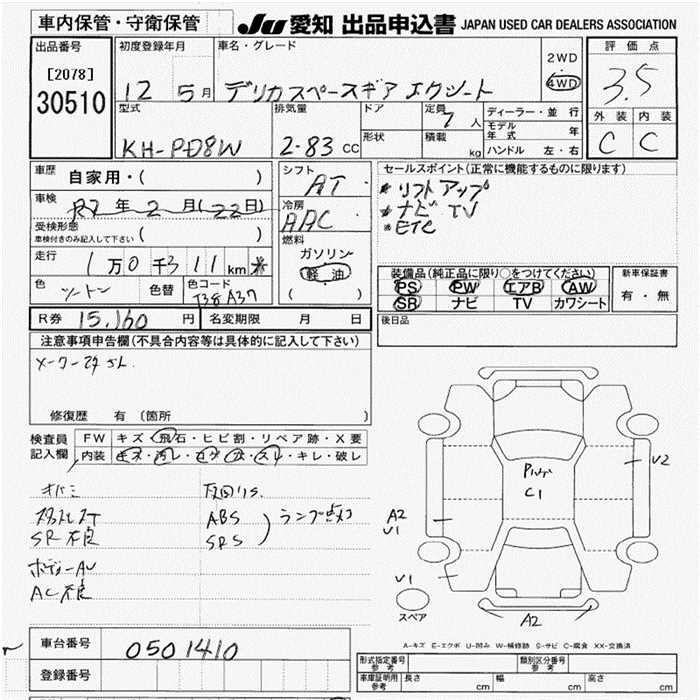 車内保管・守衛保管
JU 愛知 出品申込書 JAPAN USED CAR DEALERS ASSOCIATION
出品番号
[2078]
30510
初度登録年月
12 5月
車名・グレード
デリカスペースギア エクシート
2WD
4WD
評価点
3.5
外装 内装
C C
型式
KH-PD8W
排気量
2.83 CC
ドア
形状
定員
7人
積載
kg
ディーラー・並行
モデル年式 年
ハンドル 左・右
車歴
自家用・( )
車検
R7年2月(22日)
受検形態
車検付きのみ記入して下さい ( )
走行
1万0千311km
色
ツートン
色替
色コード
シフト
AT
冷房
AAC
燃料
ガソリン
軽油
( )
セールスポイント(正常に機能するものに限ります)
リフトアップ
ナビ TV
ETC
装備品(純正品に限り○をつけてください)
PS PW エアB AW
SR ナビ TV カワシート
新車保証書
有・無
後日品
R券 15,160円
名変期限 月 日
注意事項申告欄(不具合内容等は具体的に記入して下さい)
修復歴 有(箇所 )
検査員記入欄
FW キズ・飛石・ヒビ割・リペア跡・X要
内装 キズ・汚レ・コゲ・穴・スレ・キレ・破レ
SR不良
ABS
SRS
ランプ点灯
AC不良
V2
C1
A2
V1
V1
スペア
A2
A-キズ E-エクボ U-凹み W-補修跡 S-サビ C-腐食 XX-交換済
車台番号
0501410
登録番号
形式指定番号 参考
類別区分番号 参考
車庫証明用 参考
長さ cm
幅 cm
高さ cm